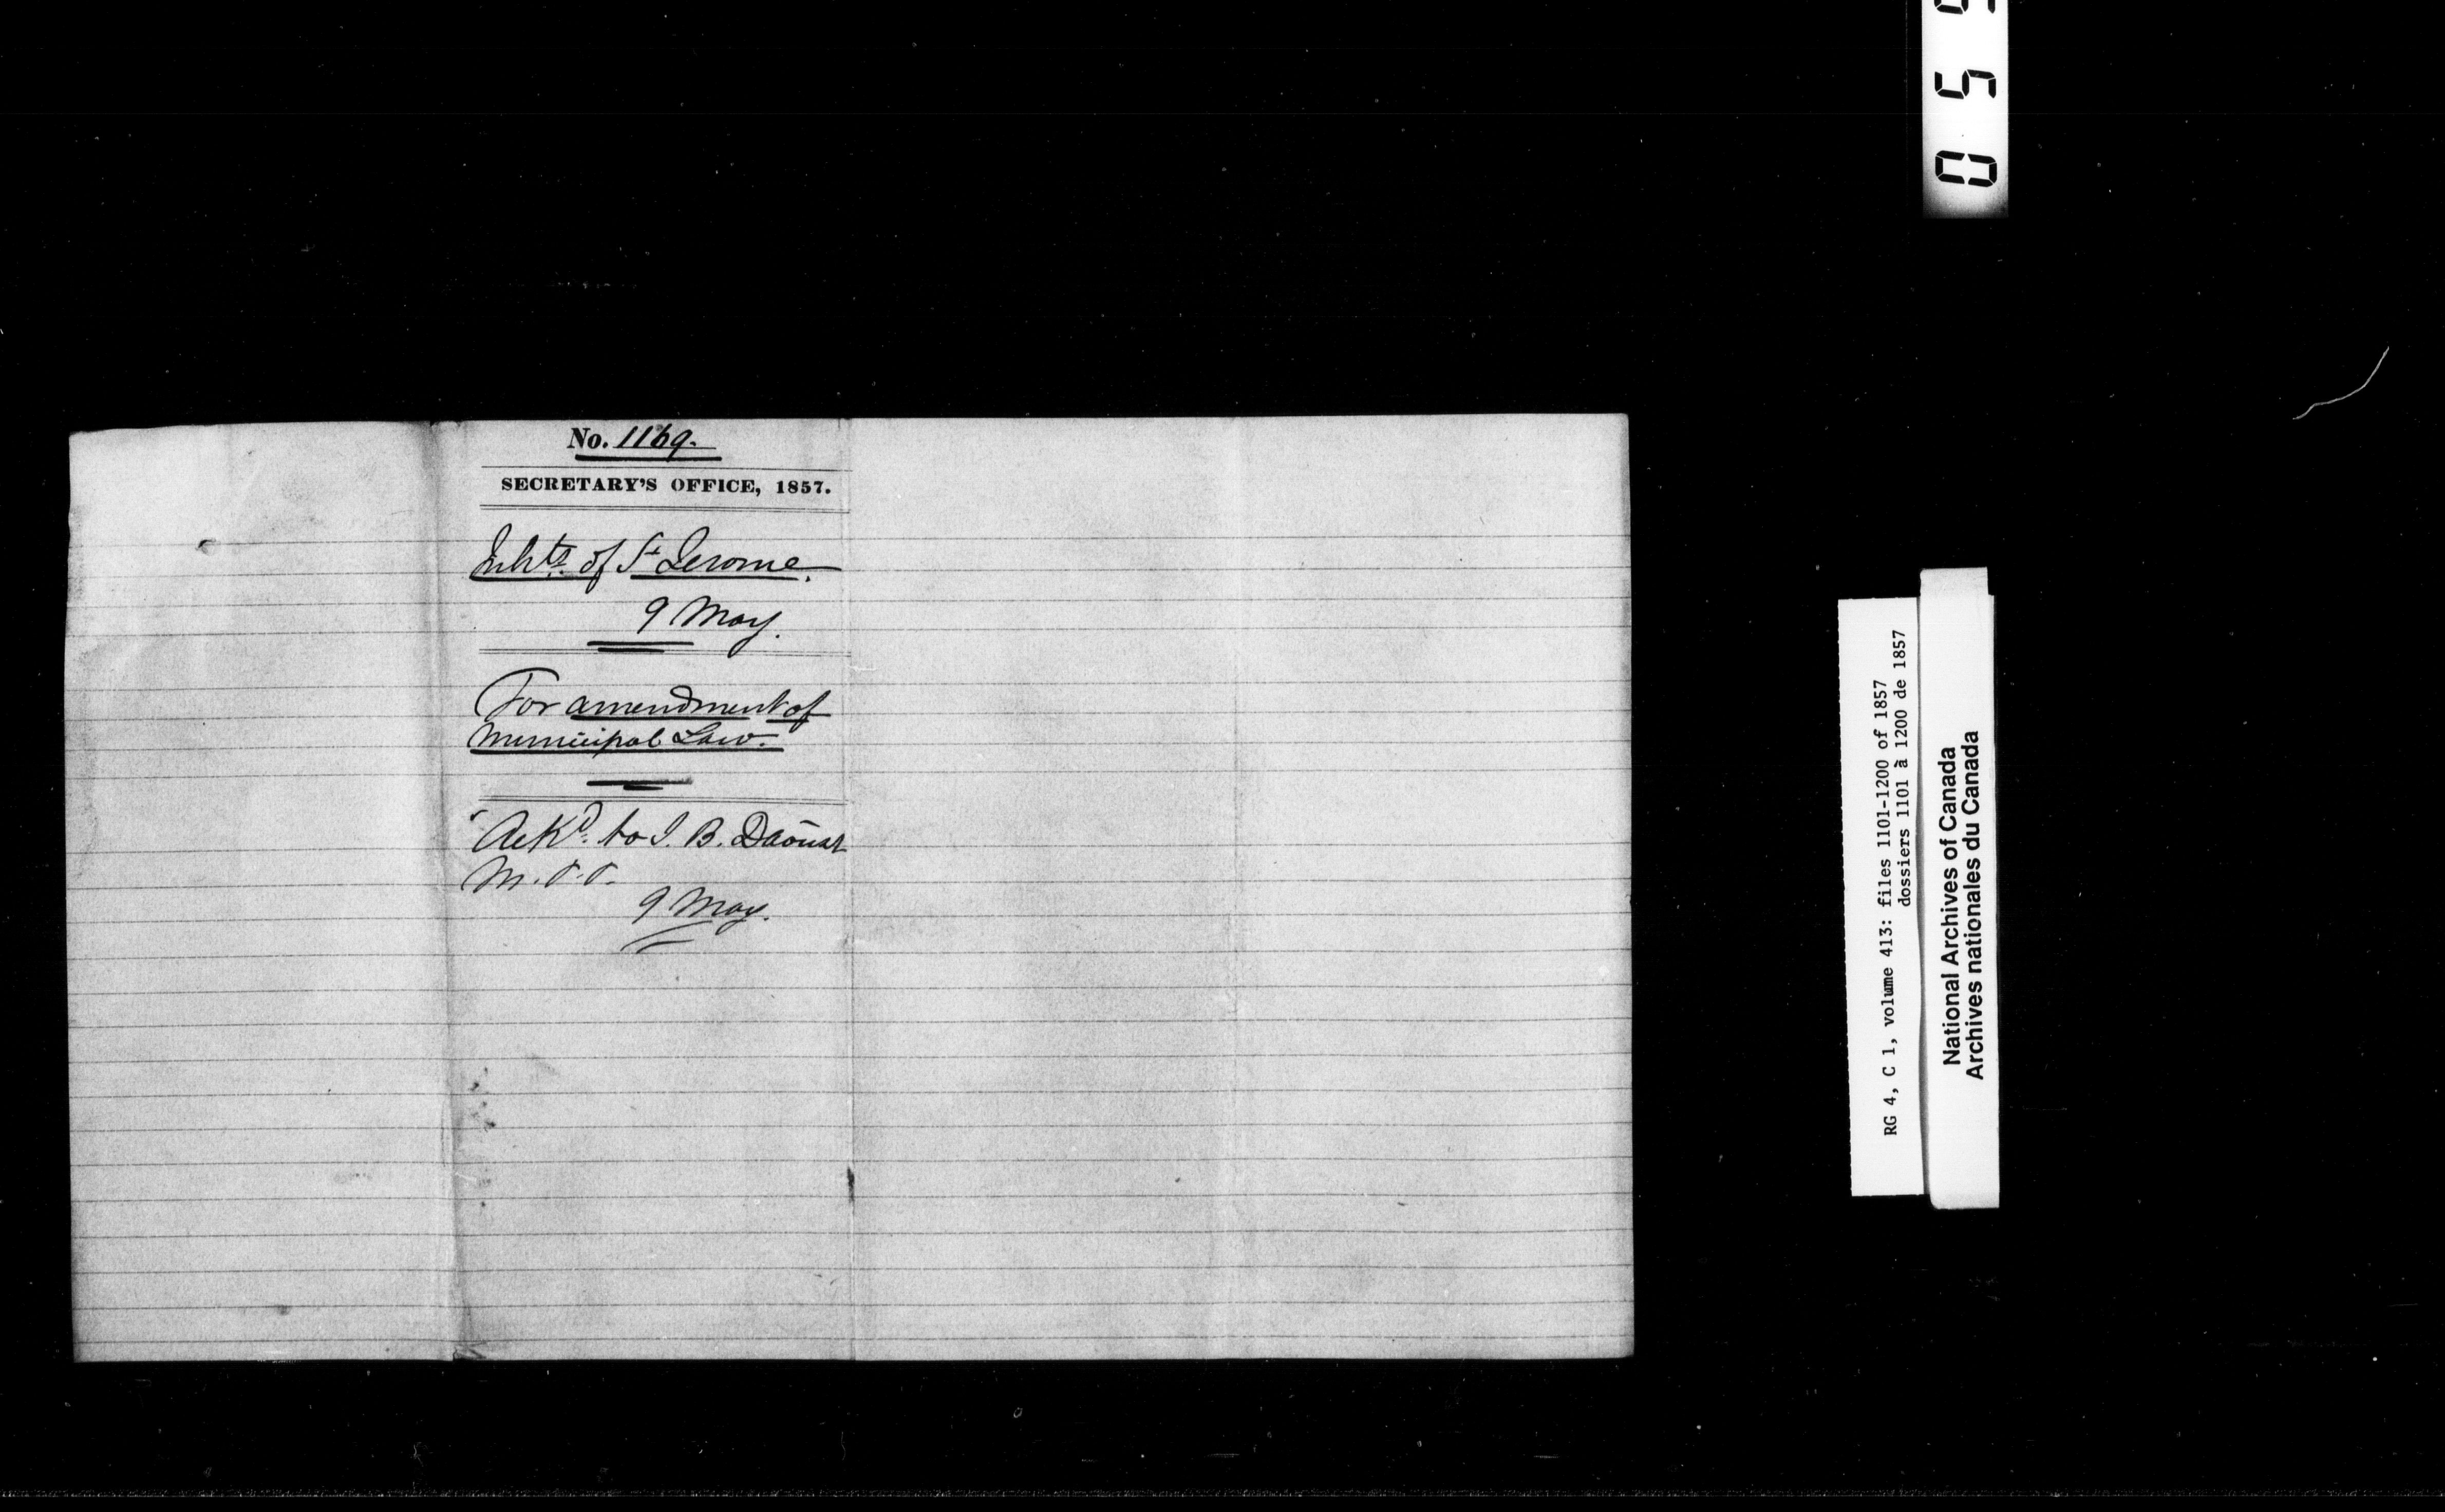 No. 1169.
SECRETARY'S OFFICE, 1857.
Inhts. of St Jerome.
9 May.
For amendment of
Municipal Law.
Ackd. to J. B. Daoust
M.P.P.
9 May.
RG 4, C 1, volume 413: files 1101-1200 of 1857
dossiers 1101 à 1200 de 1857
National Archives of Canada
Archives nationales du Canada